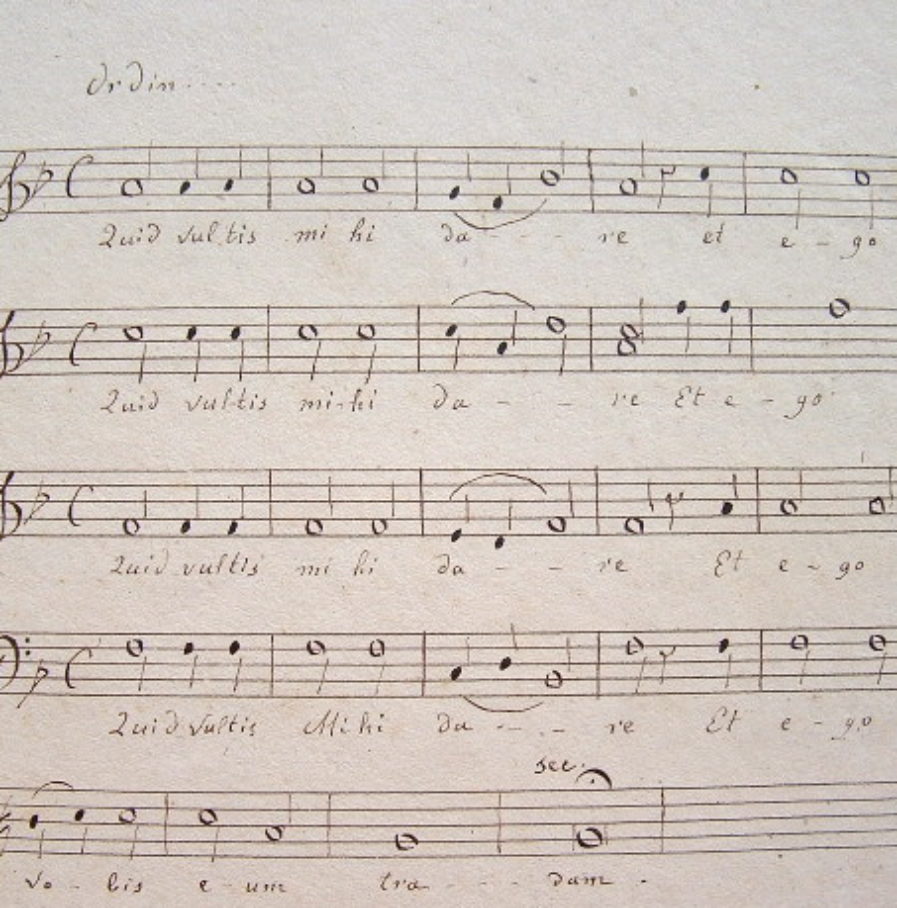 Ordin.....
Quid vultis mi hi da - - - re et e - go
Quid vultis mi-hi da - - re Et e - go
Quid vultis mi hi da - - re Et e - go
Quid Vultis Mi hi da - - - re Et e - go
sec.
vo - bis e - um tra - - - dam -